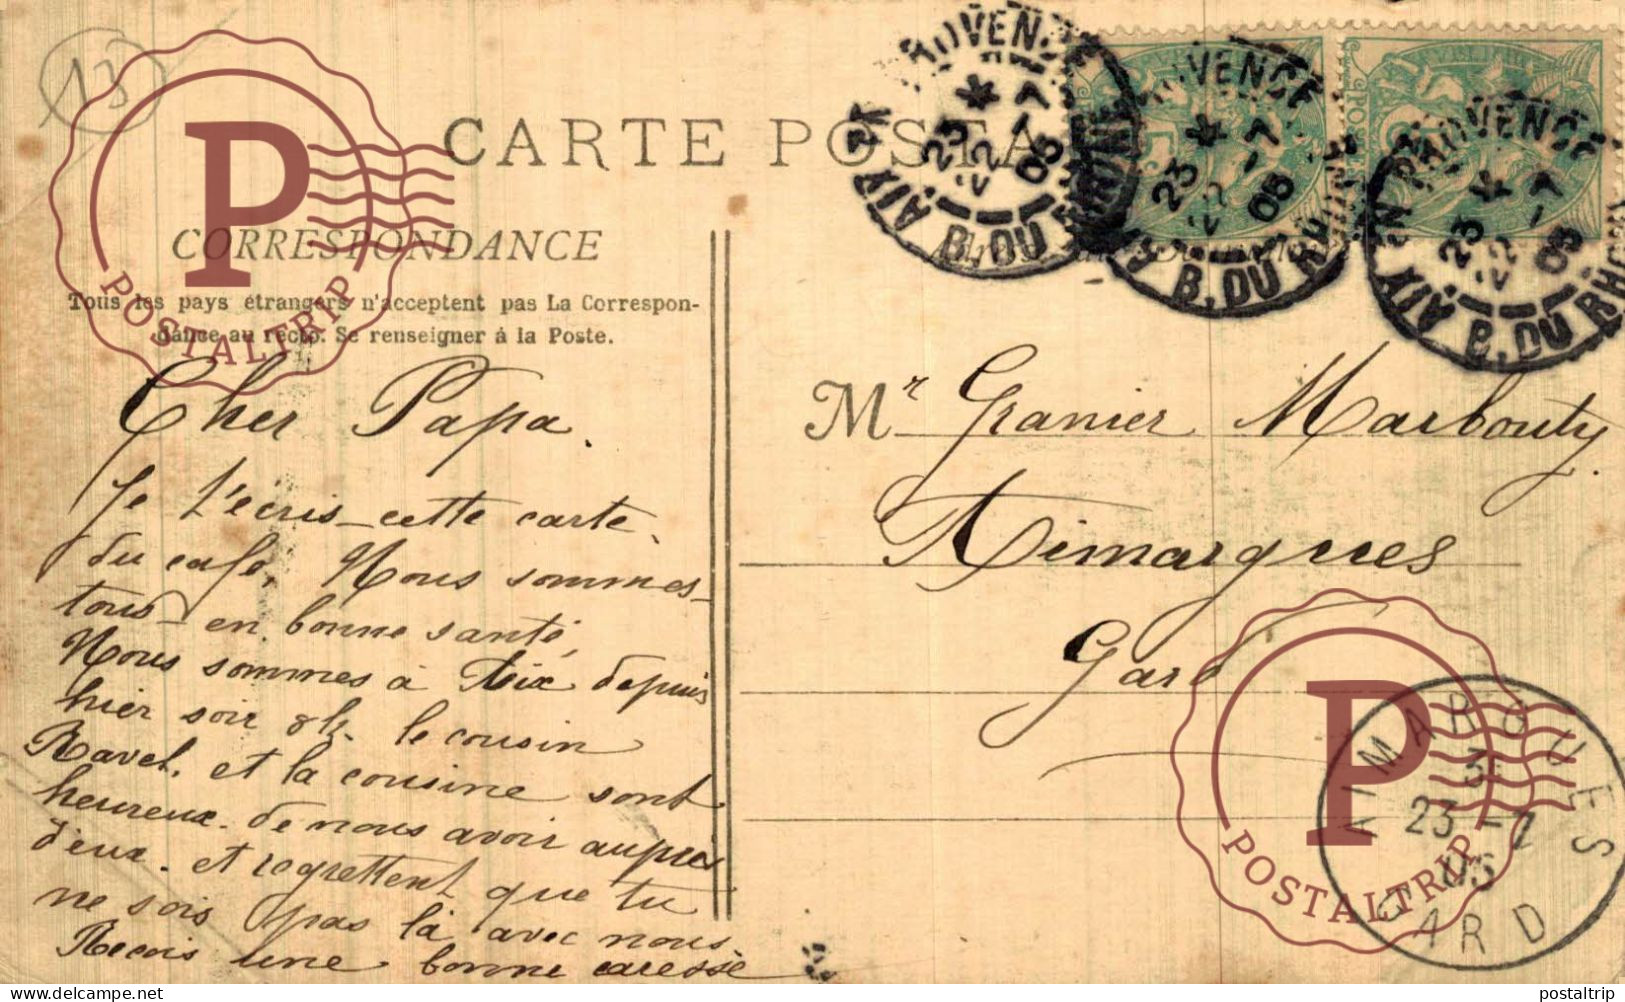 13
CARTE POSTA
CORRESPONDANCE
Tous les pays étrangers n'acceptent pas La Correspon-
dance au recto. Se renseigner à la Poste.
Cher Papa.
Je t'écris cette carte
du café, Nous sommes
tous en bonne santé,
Nous sommes à Aix depuis
hier soir 8h. le cousin
Ravel. et la cousine sont
heureux de nous avoir auprès
d'eux. et regrettent que tu
ne sois pas là avec nous.
Reçois une bonne caresse
AIX EN PROVENCE
B. DU RHONE
23 2-7 05
AIX EN PROVENCE
B. DU RHONE
23 2-7 05
AIX EN PROVENCE
B. DU RHONE
23 2-7 05
Mr Granier Marbouty
Aimargues
Gard
AIMARGUES
3E
23-7
05
GARD
P
POSTALTRIP
P
POSTALTRIP
delcampe.net
postaltrip